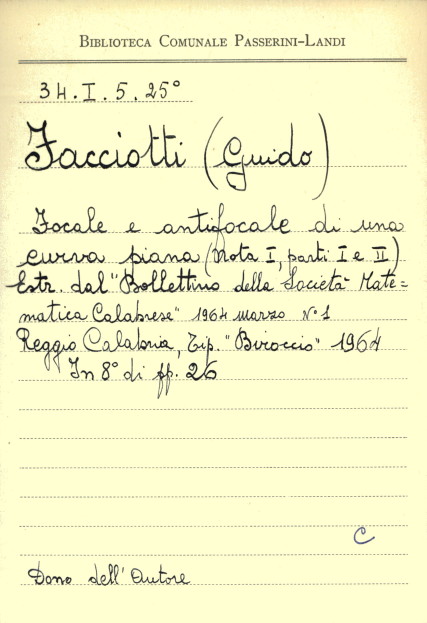 BIBLIOTECA COMUNALE PASSERINI-LANDI
34.I.5.25°
Facciotti (Guido)
Focale e antifocale di una
curva piana (Nota I, parti I e II)
Estr. dal "Bollettino della Società Mate=
matica Calabrese" 1964 marzo N° 1
Reggio Calabria, Tip. "Biroccio" 1964
In 8° di pp. 26
C
Dono dell'Autore